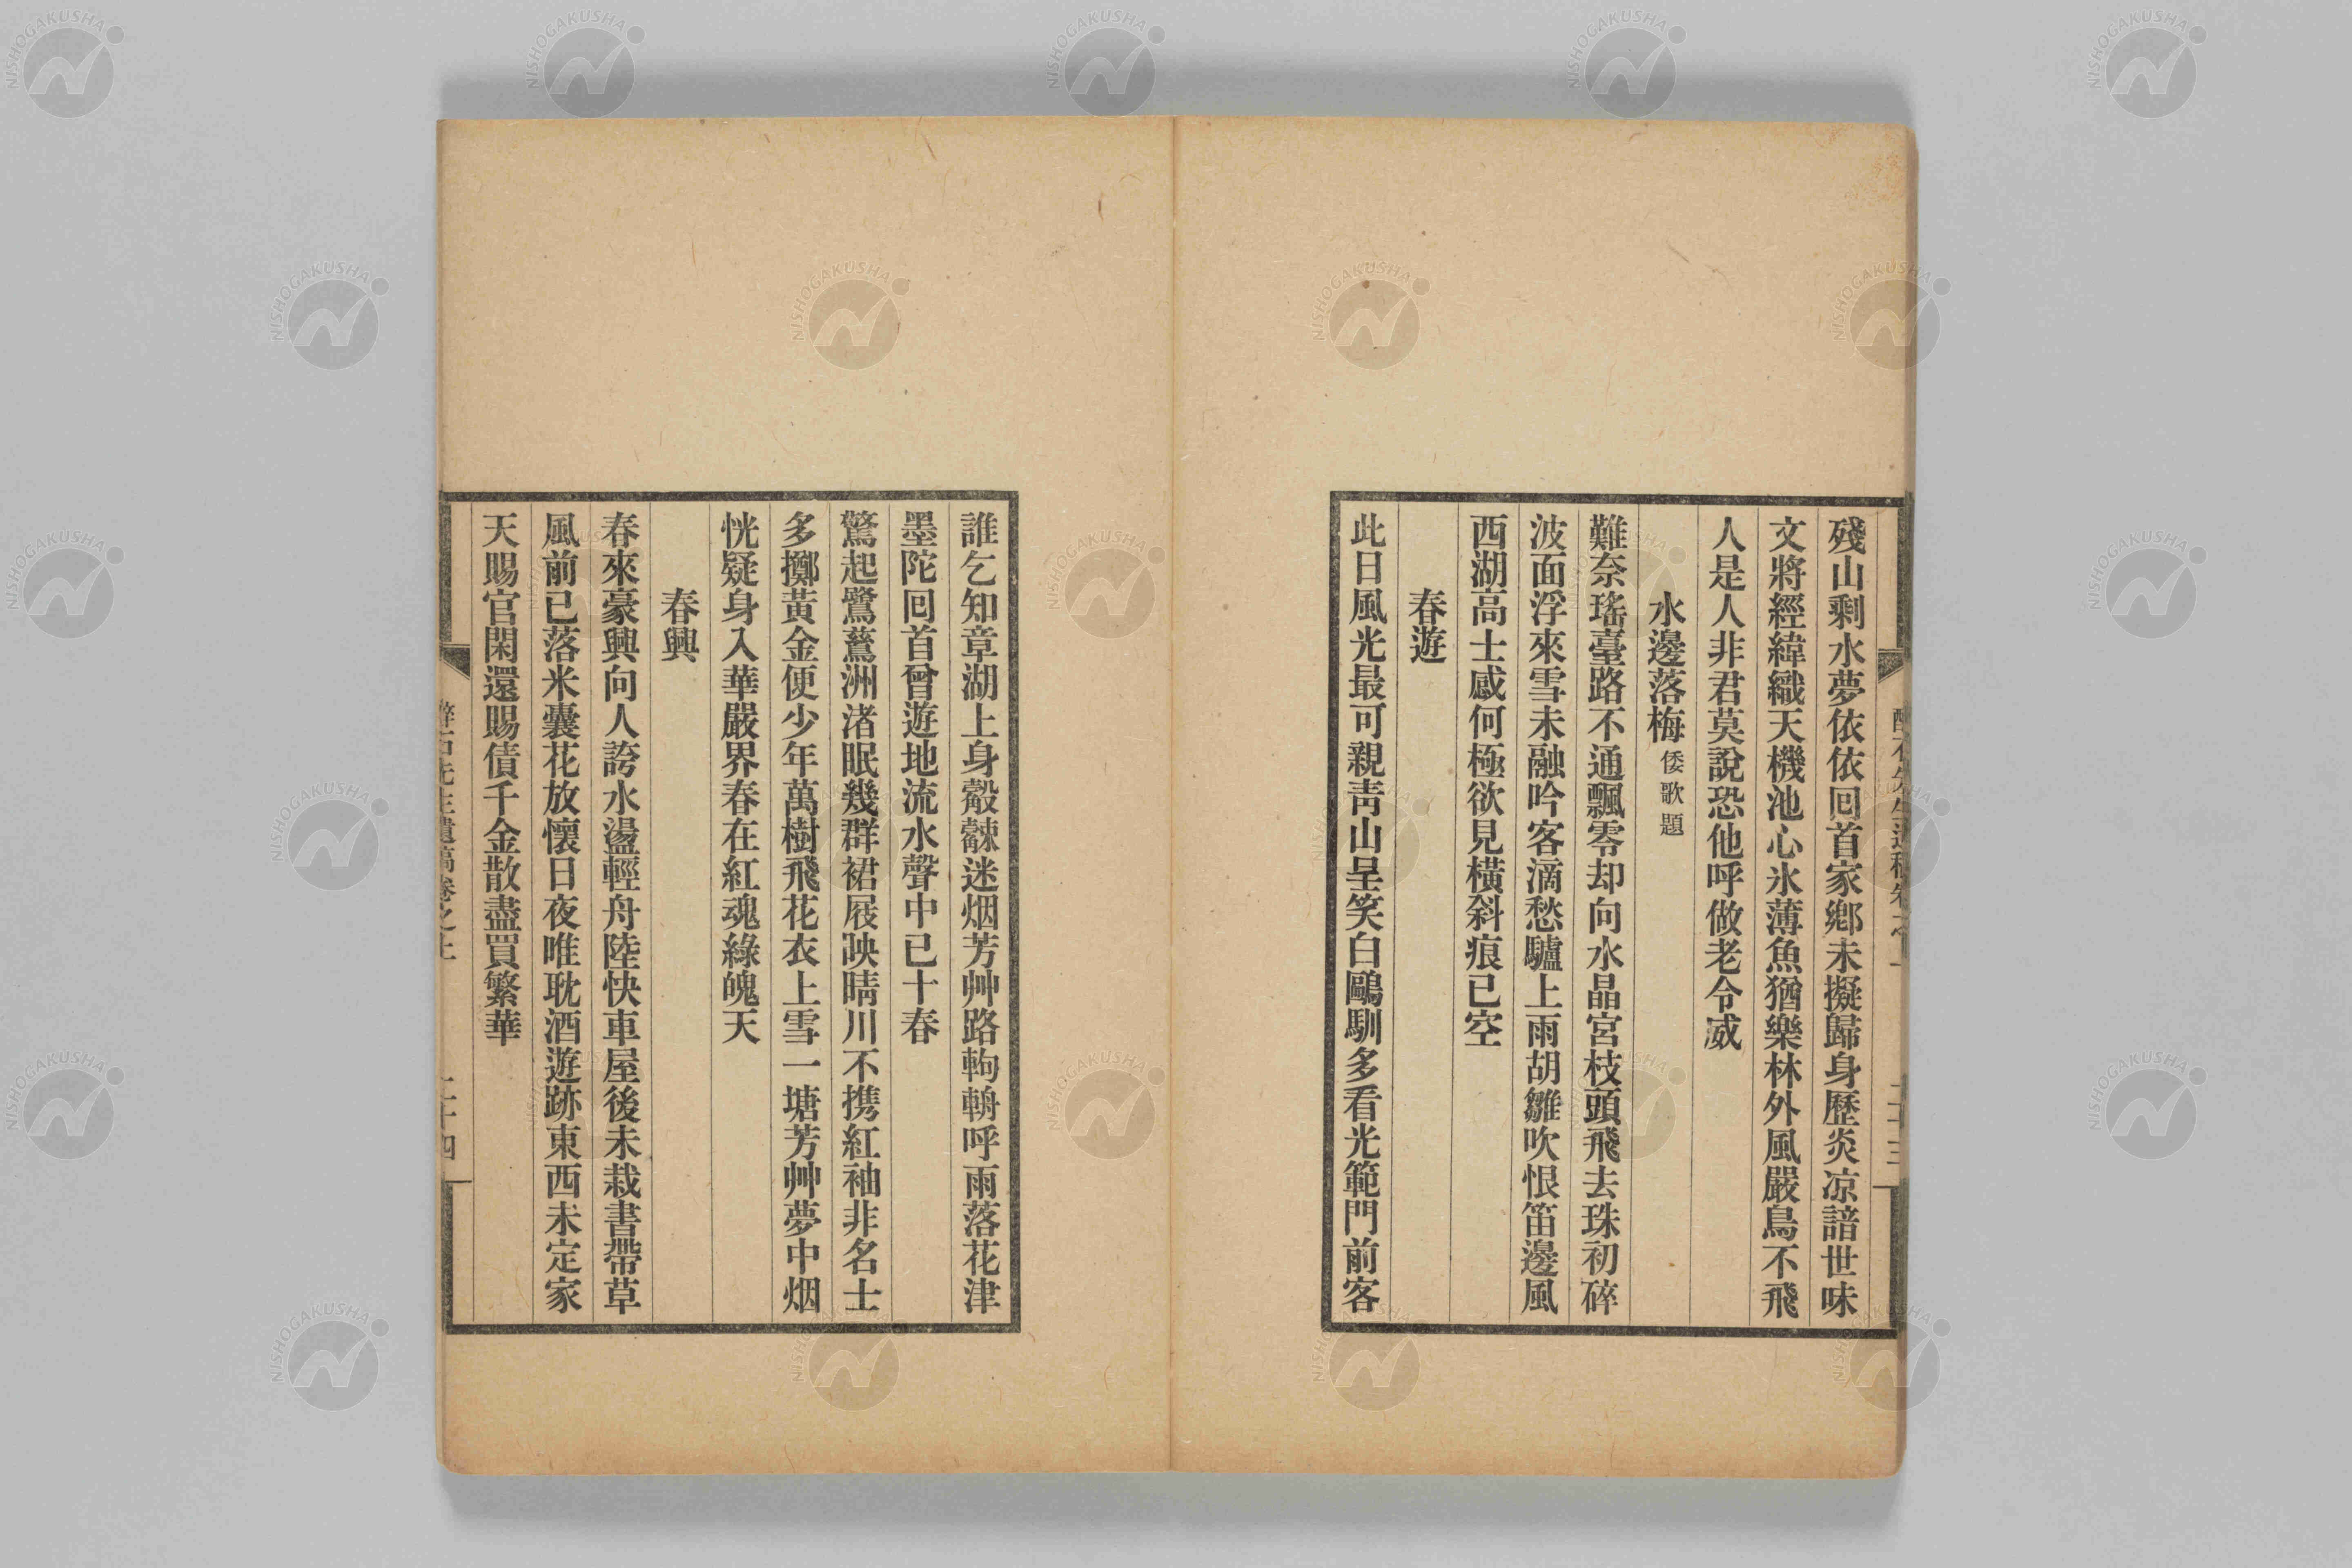 殘山剩水夢依依回首家鄕未擬歸身歷炎凉諳世味
文將經緯織天機池心氷薄魚猶樂林外風嚴鳥不飛
人是人非君莫說恐他呼做老令威
水邊落梅 倭歌題
難奈瑤臺路不通飄零却向水晶宮枝頭飛去珠初碎
波面浮來雪未融吟客滴愁驢上雨胡雛吹恨笛邊風
西湖高士感何極欲見橫斜痕已空
春遊
此日風光最可親靑山呈笑白鷗馴多看光範門前客
誰乞知章湖上身觳觫迷烟芳艸路輷輈呼雨落花津
墨陀回首曾遊地流水聲中已十春
驚起鷺鶿洲渚眠幾群裙屐映晴川不携紅袖非名士
多擲黃金便少年萬樹飛花衣上雪一塘芳艸夢中烟
恍疑身入華嚴界春在紅魂綠魄天
春興
春來豪興向人誇水盪輕舟陸快車屋後未栽書帶草
風前已落米囊花放懷日夜唯耽酒遊跡東西未定家
天賜官閑還賜債千金散盡買繁華
石先生遺稿卷之上
二十四
NISHOGAKUSHA